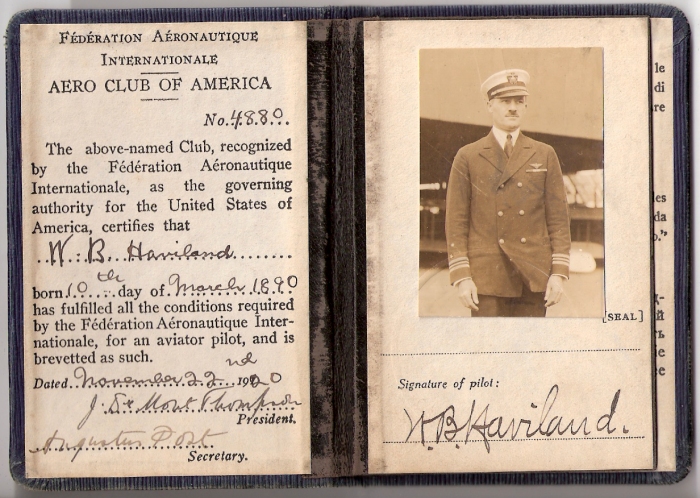 FÉDÉRATION AÉRONAUTIQUE
INTERNATIONALE
AERO CLUB OF AMERICA
No. 4880
The above-named Club, recognized
by the Fédération Aéronautique
Internationale, as the governing
authority for the United States of
America, certifies that
W. B. Haviland
born 10th day of March 1890
has fulfilled all the conditions required
by the Fédération Aéronautique Inter-
nationale, for an aviator pilot, and is
brevetted as such.
Dated November 22nd 1920
J. De Mont Thompson
President.
Augustus Post
Secretary.
[SEAL]
Signature of pilot:
W.B. Haviland.
le
di
re
es
da
o."
ie
ce